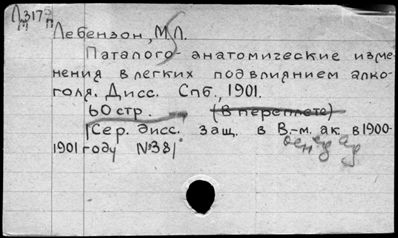 Л317
М П
Лебензон, М.Л.
Паталого-анатомические изме-
нения в легких под влиянием алко-
голя. Дисс. Спб., 1901.
60 стр. (В переплете)
[Сер. дисс. защ. в В.-м. ак. в 1900-
1901 году №38]